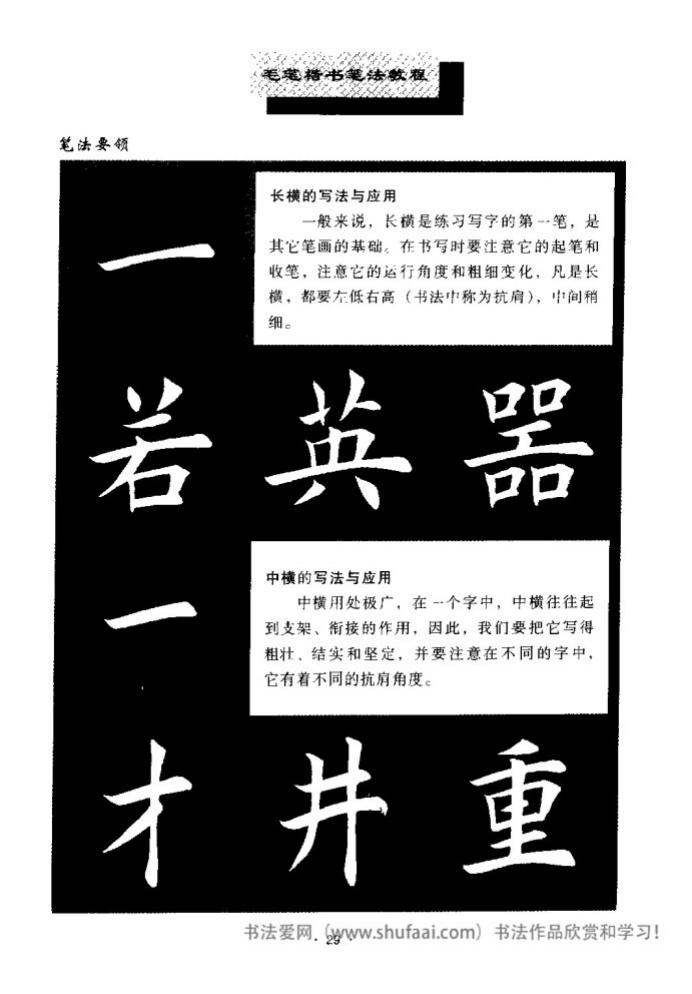 毛笔楷书笔法教程
笔法要领
一
长横的写法与应用
一般来说，长横是练习写字的第一笔，是
其它笔画的基础。在书写时要注意它的起笔和
收笔，注意它的运行角度和粗细变化，凡是长
横，都要左低右高（书法中称为抗肩），中间稍
细。
若 英 器
一
中横的写法与应用
中横用处极广，在一个字中，中横往往起
到支架、衔接的作用，因此，我们要把它写得
粗壮、结实和坚定，并要注意在不同的字中，
它有着不同的抗肩角度。
才 井 重
书法爱网（www.shufaai.com）书法作品欣赏和学习！
· 29 ·